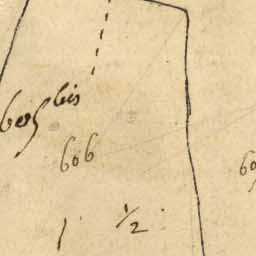 605 bis
606
60
1 1/2